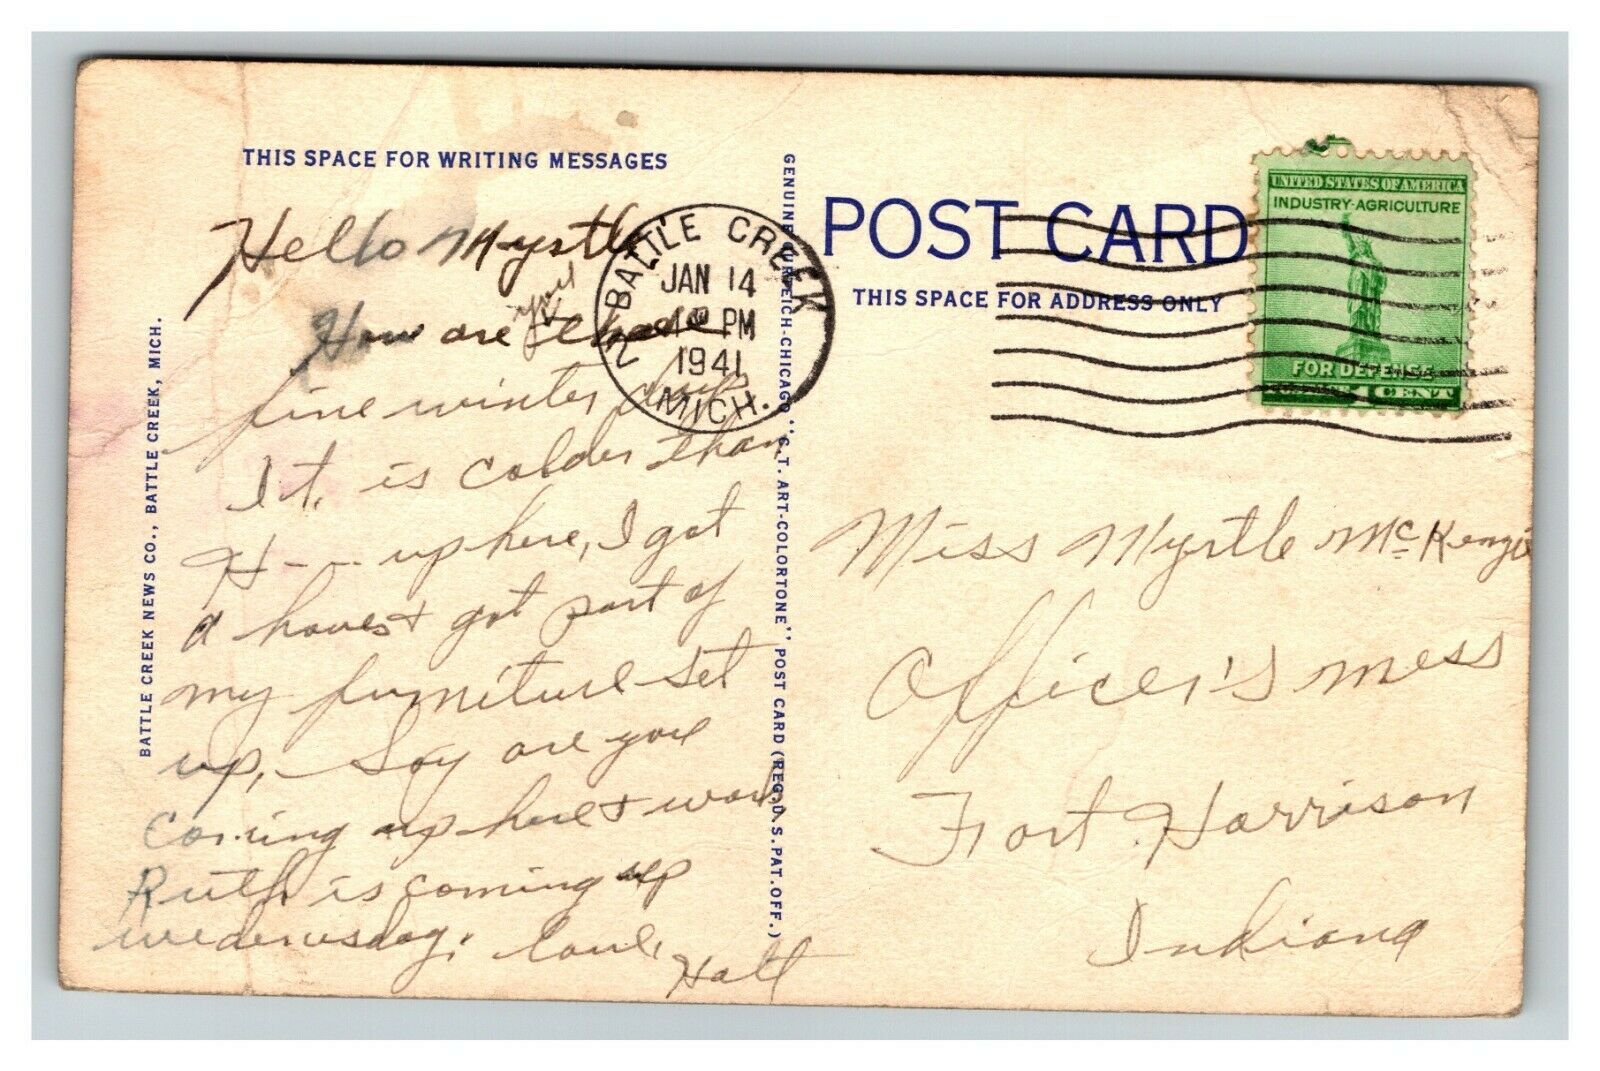 THIS SPACE FOR WRITING MESSAGES
Hello Myrtle
How are you these
fine winter days
It. is colder than
H--- up here, I got
a house & got part of
my furniture set
up, Say are you
coming up here & work
Ruth is coming up
wedensday. Love,
Holt
BATTLE CREEK NEWS CO., BATTLE CREEK, MICH.
GENUINE CURTEICH-CHICAGO "C.T. ART-COLORTONE" POST CARD (REG. U.S. PAT. OFF.)
BATTLE CREEK
JAN 14
PM
1941
MICH.
POST CARD
THIS SPACE FOR ADDRESS ONLY
UNITED STATES OF AMERICA
INDUSTRY-AGRICULTURE
FOR DEFENSE
1 CENT
Miss Myrtle McKenzie
Officer's Mess
Fort Harrison
Indiana